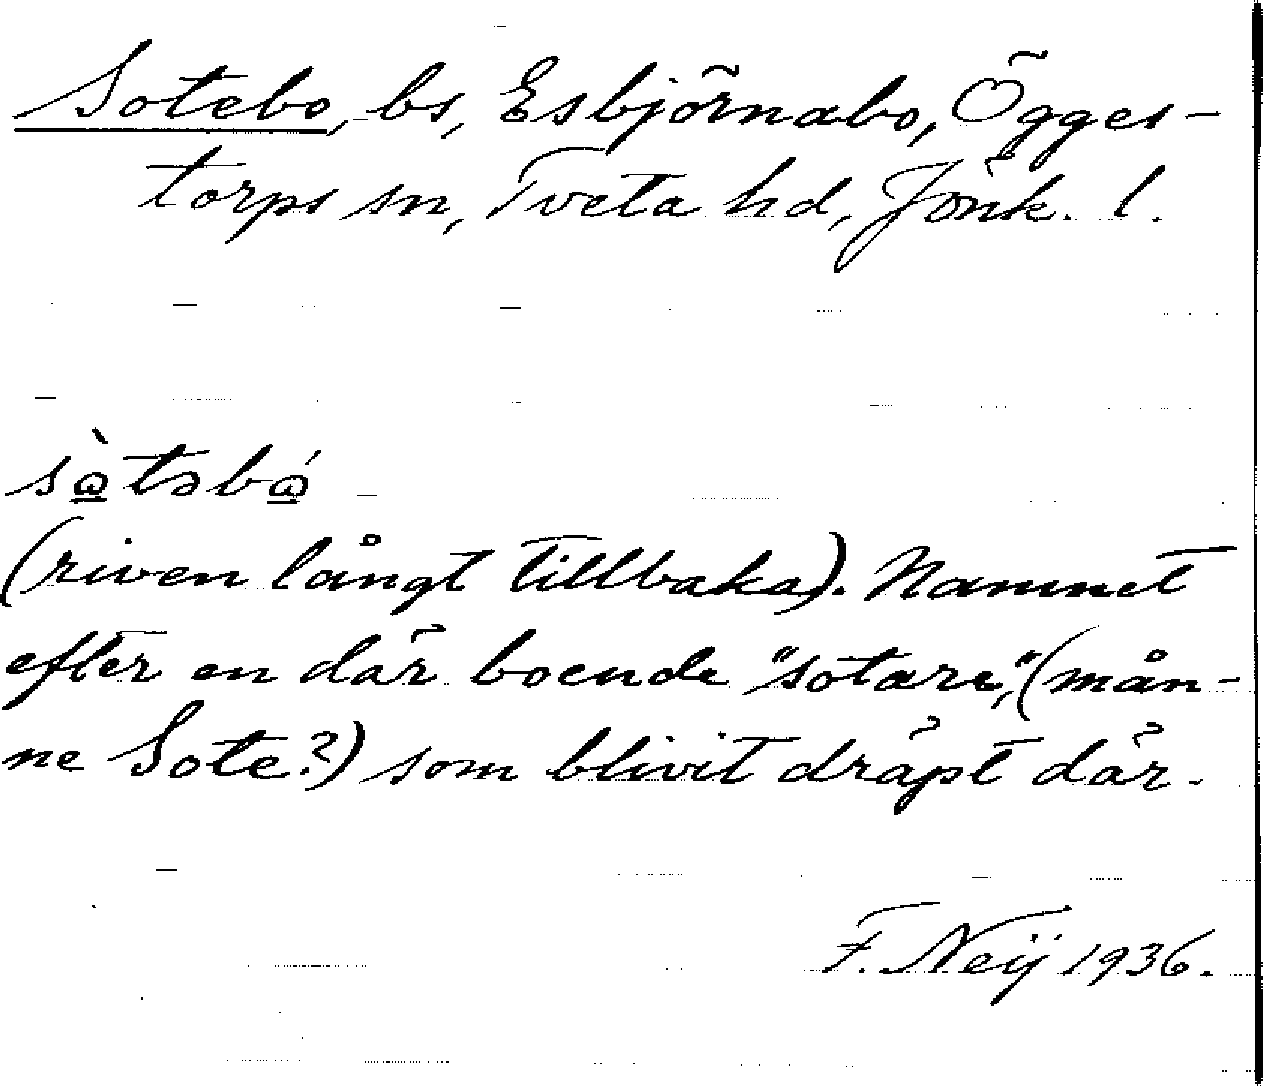 Sotebo, bs, Esbjörnabo, Ögges-
torps sn, Tveta hd, Jönk. l.
sὼtəbώ
(riven långt tillbaka). Namnet
efter en där boende "sotare," (mån-
ne Sote?) som blivit dräpt där.
F. Neij 1936.